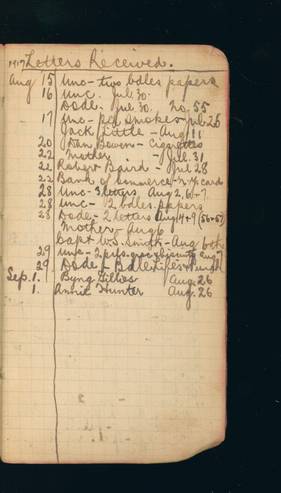 1917 Letters Received.
Aug 15 Unc - two bdles papers
16 Unc. Jul 30.
Dode. Jul 30. No. 55
17 Unc - pkg smokes - Jul 26
Jack Little - Aug 11
20 Dan Bowers - Cigarettes
22 Mother Jul 31
22 Robert Baird - Jul 28
22 Bank of Commerce card
28 Unc - 3 letters Aug 2, 6 + 7
28 Unc - 12 bdles papers
28 Dode - 2 letters Aug 4 + 9 (56 + 57)
Mother - Aug 6
Capt W.S. Smith - Aug 6th
29 Unc - 2 pcls. groc + biscuits Aug 7
29 Dode -
Sep. 1. Byng Gillies Aug. 26
1. Annie Hunter Aug. 26